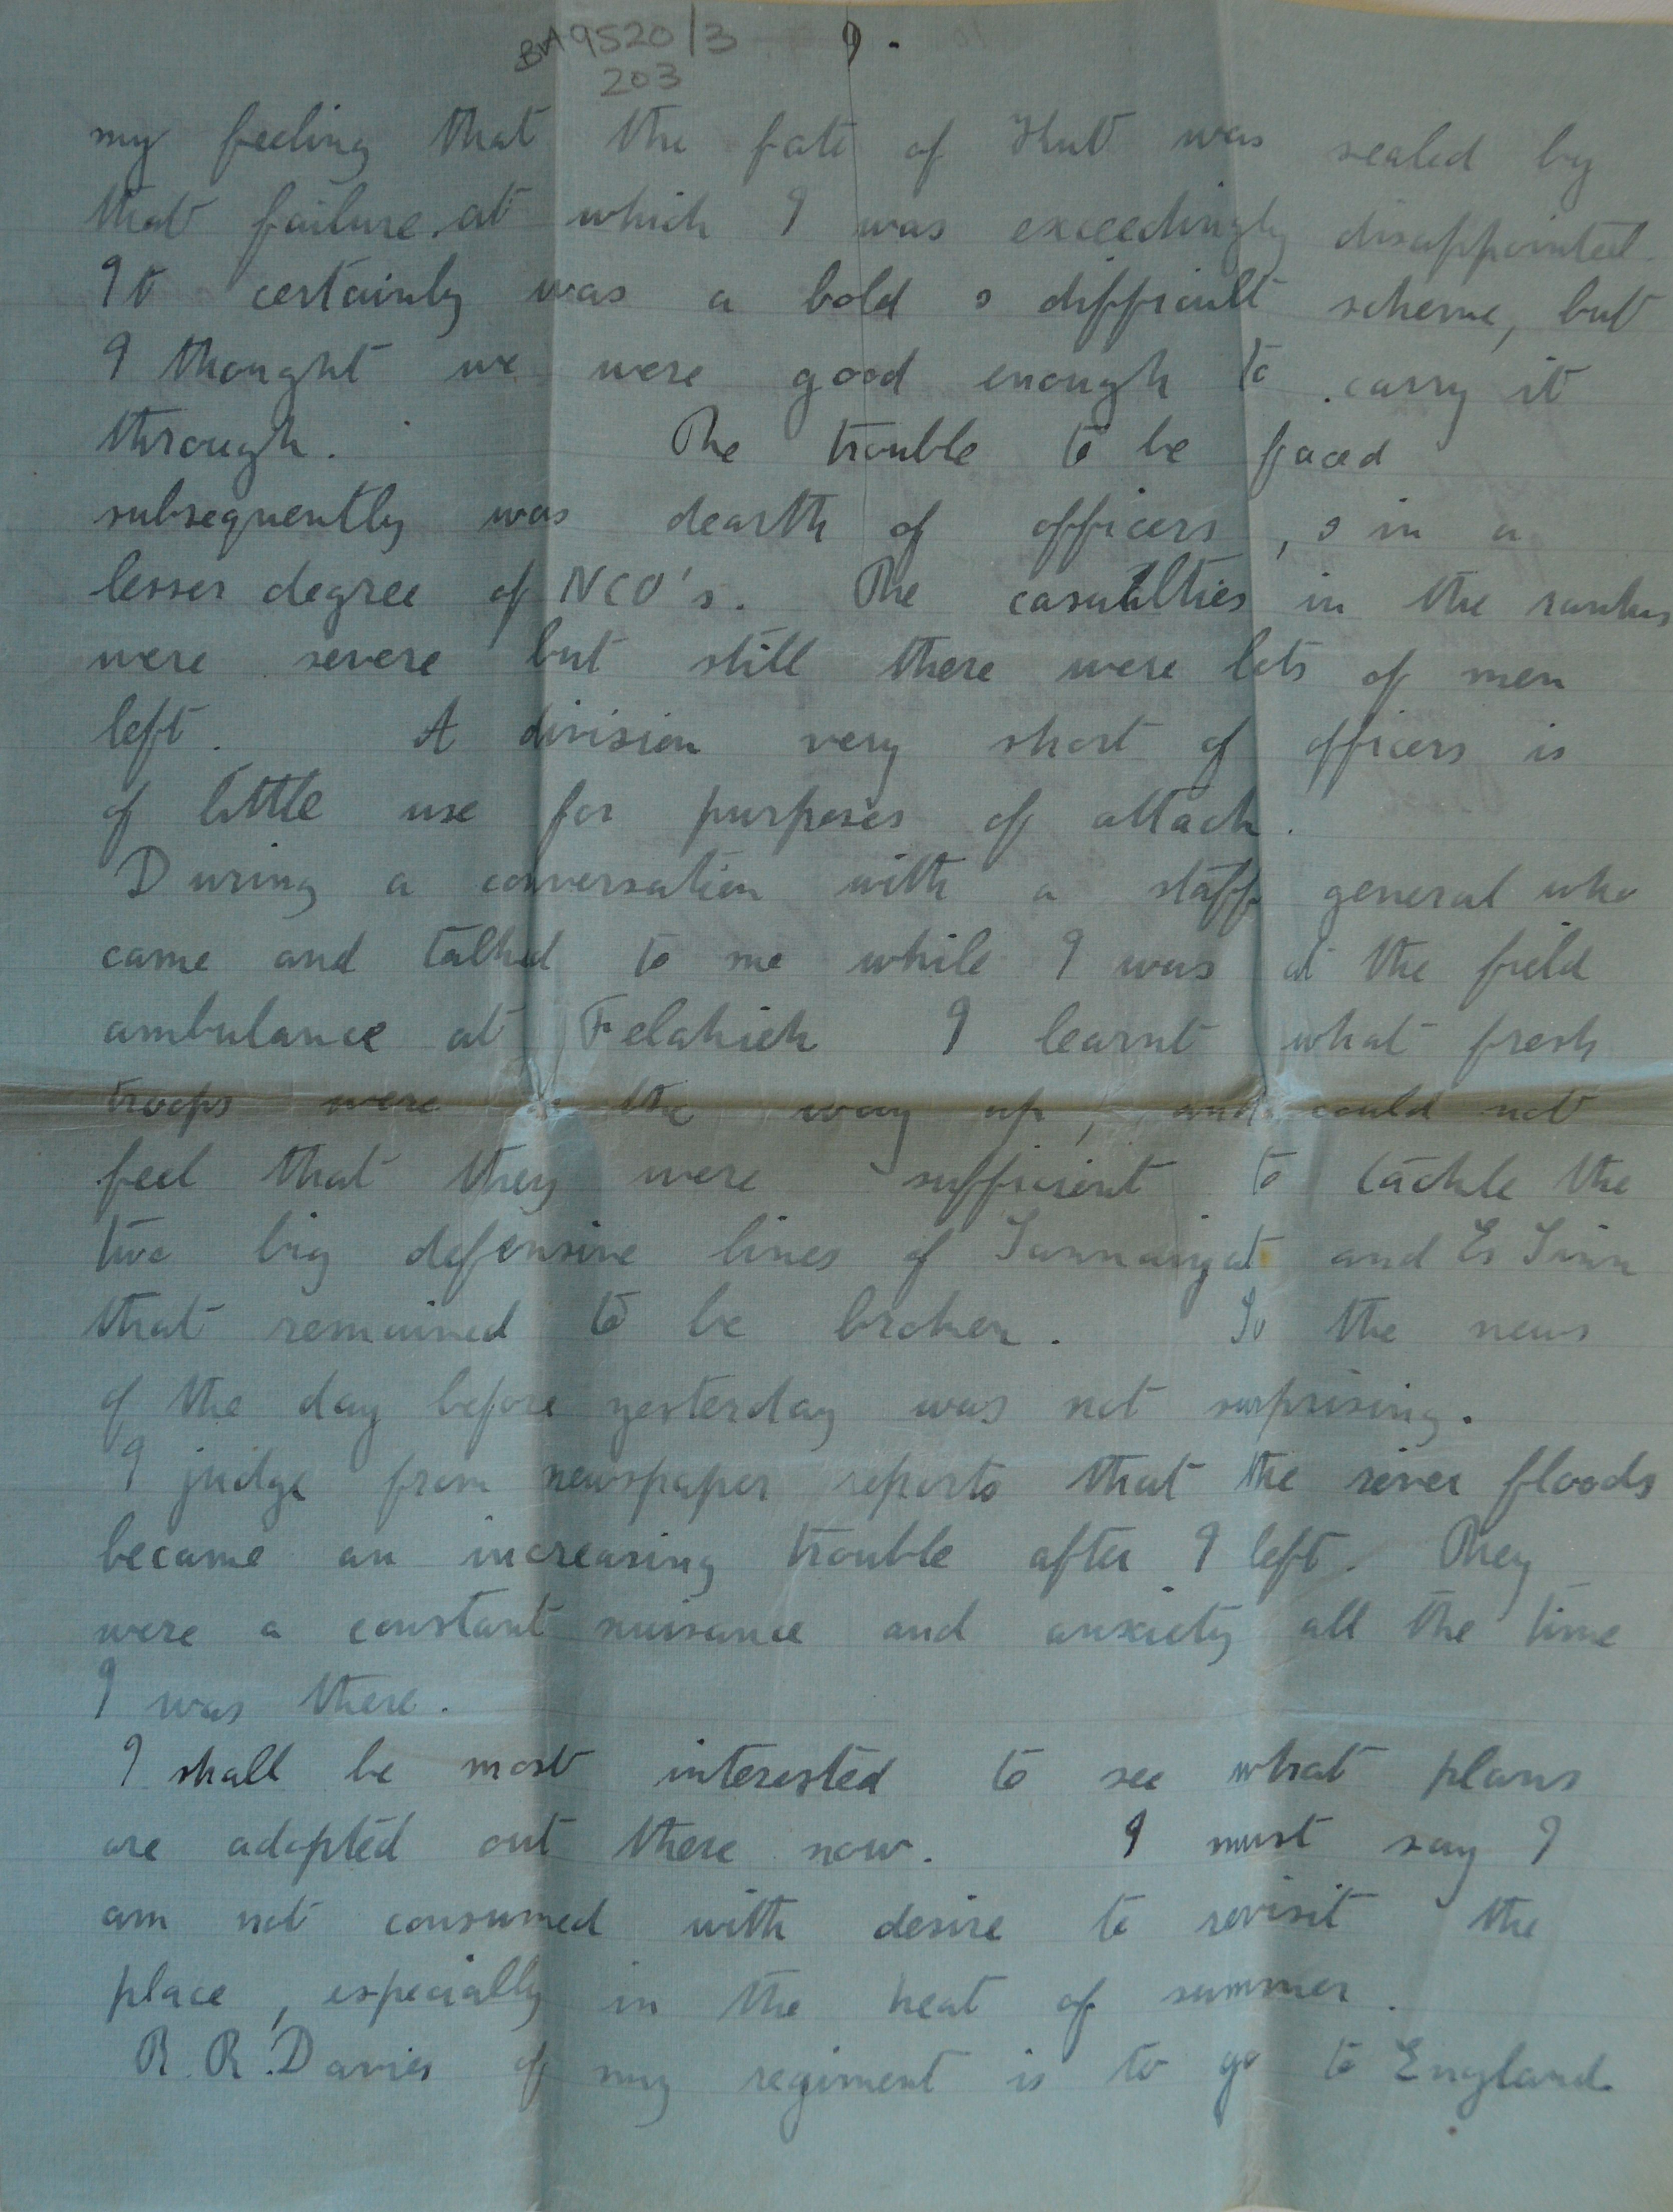 BA9520/3 9.
203
my feeling that the fate of Kut was sealed by
that failure at which I was exceedingly disappointed.
It certainly was a bold & difficult scheme, but
I thought we were good enough to carry it
through. The trouble to be faced
subsequently was dearth of officers, & in a
lesser degree of NCO's. The casualties in the ranks
were severe but still there were lots of men
left. A division very short of officers is
of little use for purposes of attack.
During a conversation with a staff general who
came and talked to me while I was at the field
ambulance at Felahieh I learnt what fresh
troops were the way up, and could not
feel that they were sufficient to tackle the
two big defensive lines of Sannaiyat and Es Sinn
that remained to be broken. So the news
of the day before yesterday was not surprising.
I judge from newspaper reports that the river floods
became an increasing trouble after I left. They
were a constant nuisance and anxiety all the time
I was there.
I shall be most interested to see what plans
are adopted out there now. I must say I
am not consumed with desire to revisit the
place, especially in the heat of summer.
R.R. Davies of my regiment is to go to England.